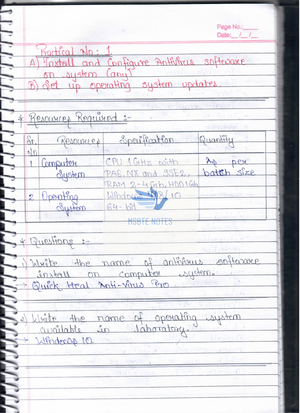 Page No.:
Date: / /
Practical No: 1
A) Install and Configure Antivirus software
on system (any)
B) Set up operating system updates.
* Resources Required :-
Sr. No Resources Specification Quantity
1 Computer System CPU 1GHz with PAE, NX and SSE2, RAM 2-4Gb, HDD16b As per batch size
2 Operating System Windows /10 64-bit
MSBTE NOTES
* Questions :-
1) Write the name of antivirus software
install on computer system.
→ Quick Heal Anti-virus Pro.
2) Write the name of operating system
available in laboratory.
→ Windows 10